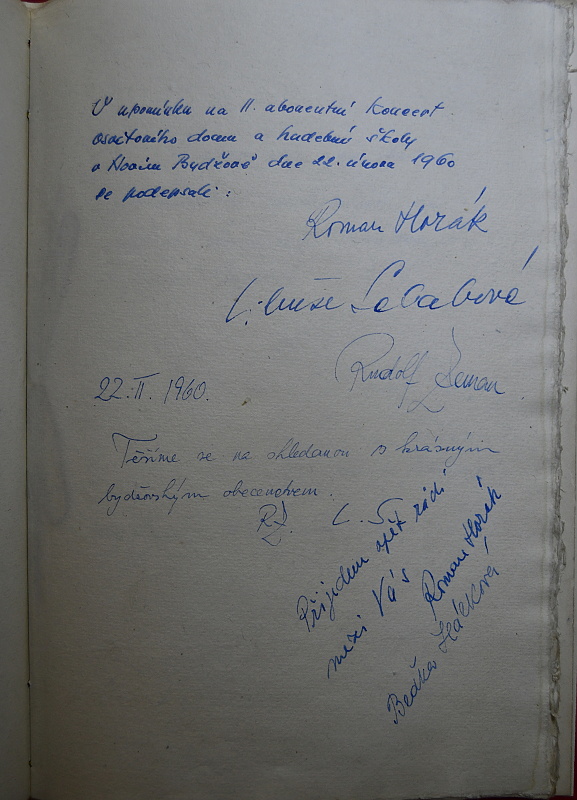 V upomínku na II. abonentní koncert
osvětového domu a hudební školy
v Novém Bydžově dne 22. února 1960
se podepsali:
Roman Horák
Libuše Lababová
Rudolf Zeman
22.II.1960.
Těšíme se na shledanou s krásným
bydžovským obecenstvem.
RZ. L.S.
Přijedem opět rádi
mezi Vás
Roman Horák